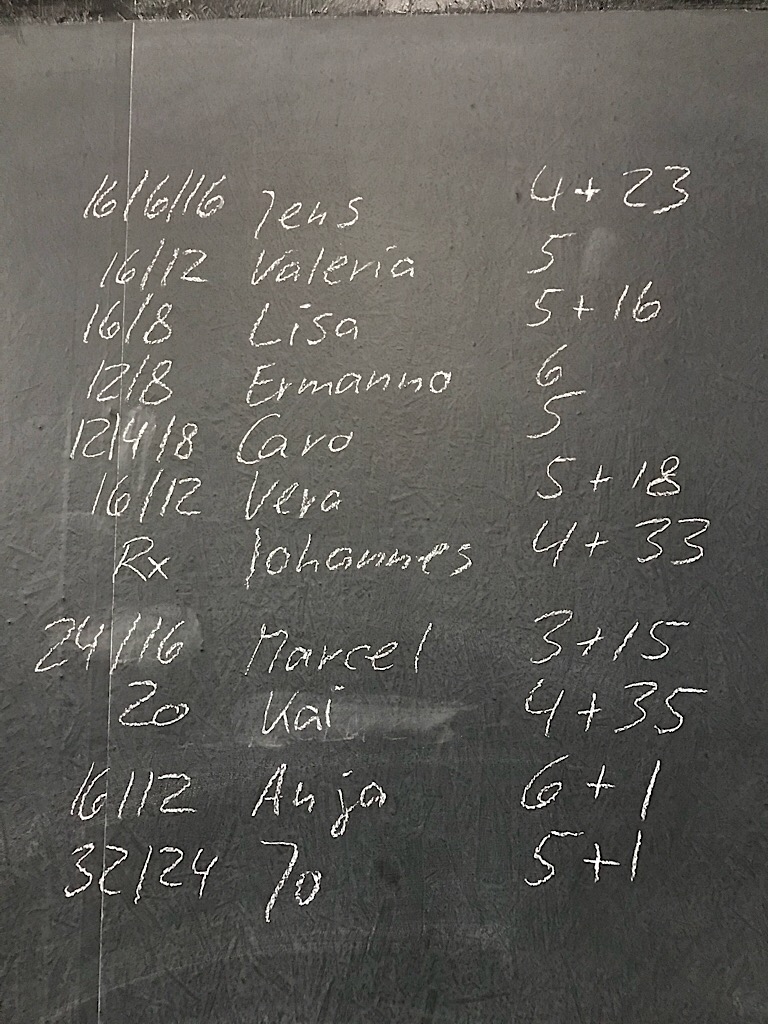 16/6/16 Jens 4 + 23
16/12 Valeria 5
16/8 Lisa 5 + 16
12/8 Ermanno 6
12/4/8 Caro 5
16/12 Vera 5 + 18
Rx Johannes 4 + 33
24/16 Marcel 3 + 15
20 Kai 4 + 35
16/12 Anja 6 + 1
32/24 Jo 5 + 1